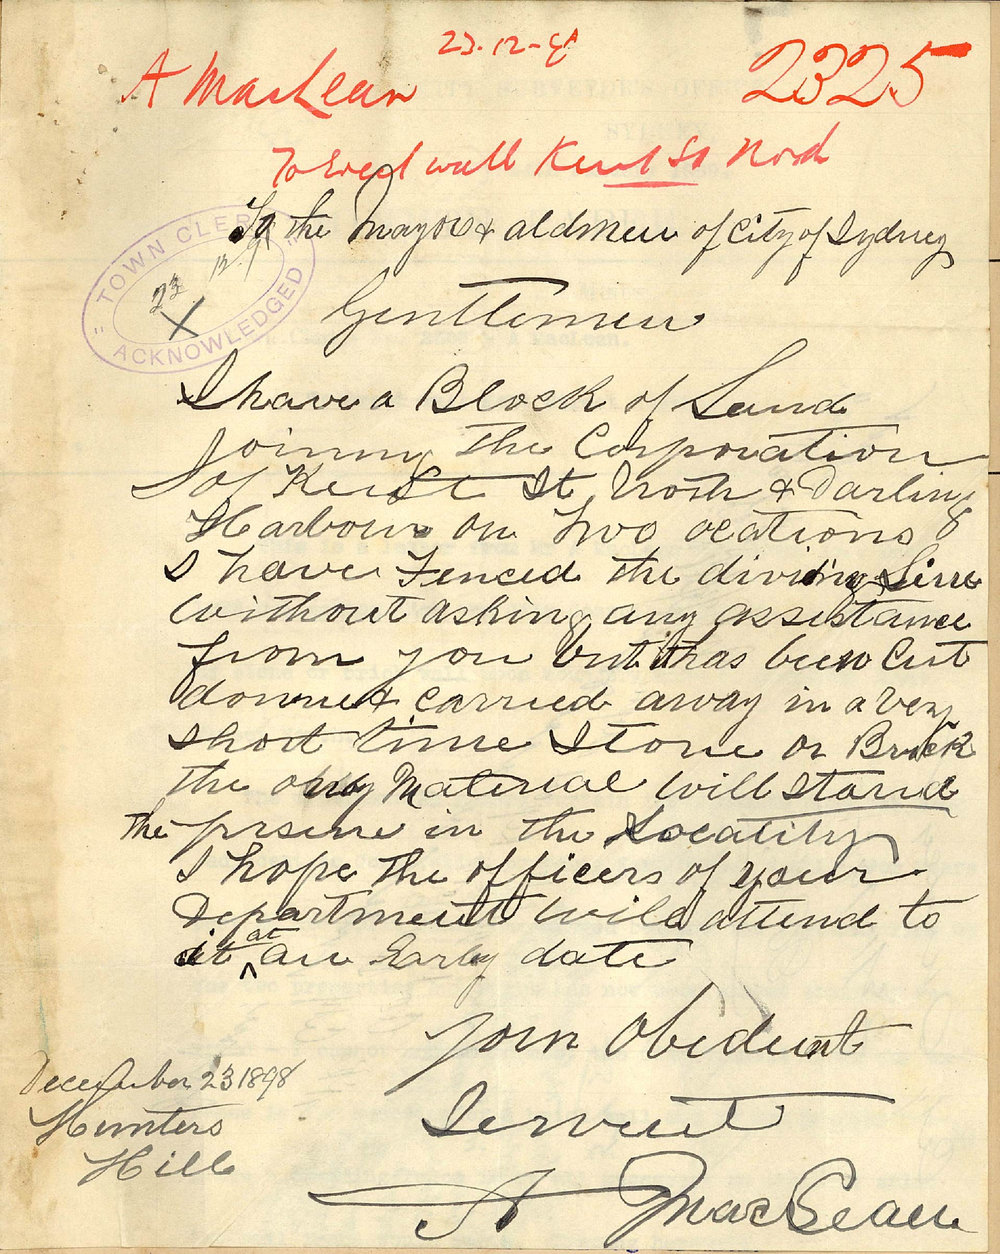 23.12-98
2325
A MacLean
To Erect wall Kent St North
TOWN CLERK
23 12.98
ACKNOWLEDGED
To the Mayor & aldmen of City of Sydney
Gentlemen
I have a Block of Land
joining the Corporation
of Kent St North & Darling
Harbour on two ocations
I have Fenced the dividing Line
without asking any assistance
from you but it has been Cut
down & carried away in a very
short time Stone or Brick
the only Material will stand
the in the Locatity
I hope the officers of your
Department will attend to
it at an Early date
your Obedient
Servent
A MacLean
December 23 1898
Hunters
Hill